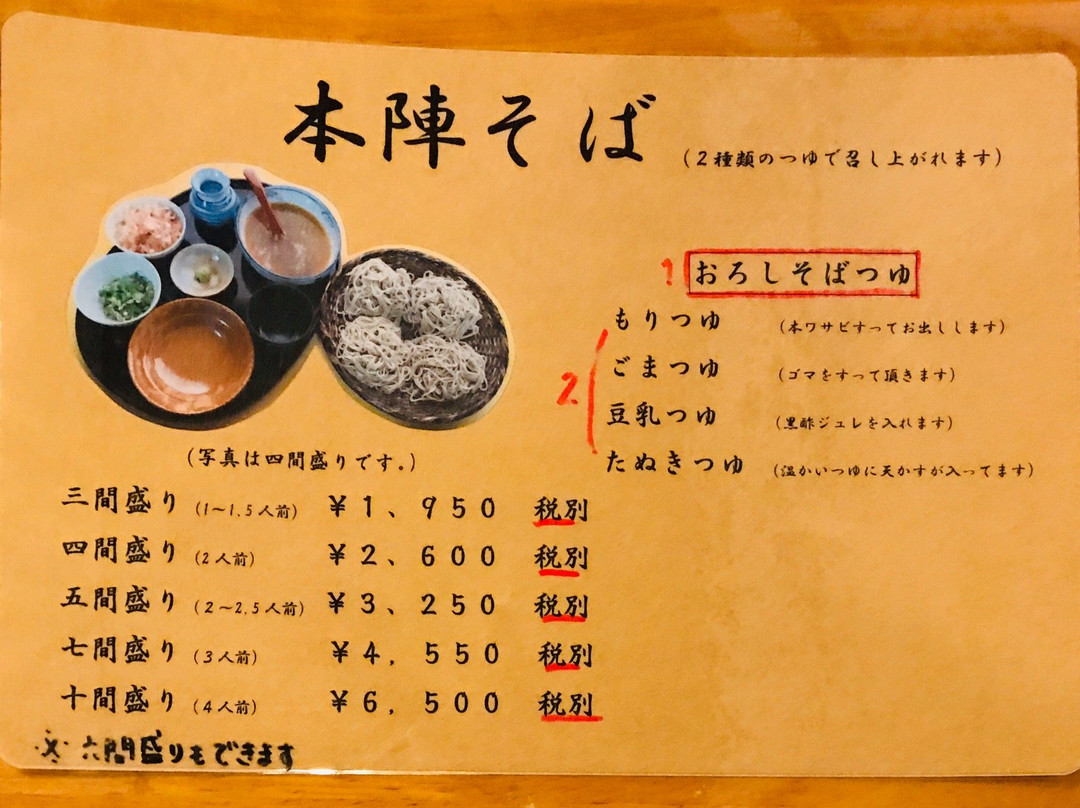 本陣そば (2種類のつゆで召し上がれます)
1 おろしそばつゆ
もりつゆ (本ワサビすってお出しします)
ごまつゆ (ゴマをすって頂きます)
2
豆乳つゆ (黒酢ジュレを入れます)
たぬきつゆ (温かいつゆに天かすが入ってます)
(写真は四間盛りです。)
三間盛り (1～1.5人前) ¥1、950 税別
四間盛り (2人前) ¥2、600 税別
五間盛り (2～2.5人前) ¥3、250 税別
七間盛り (3人前) ¥4,550 税別
十間盛り (4人前) ¥6,500 税別
※六間盛りもできます